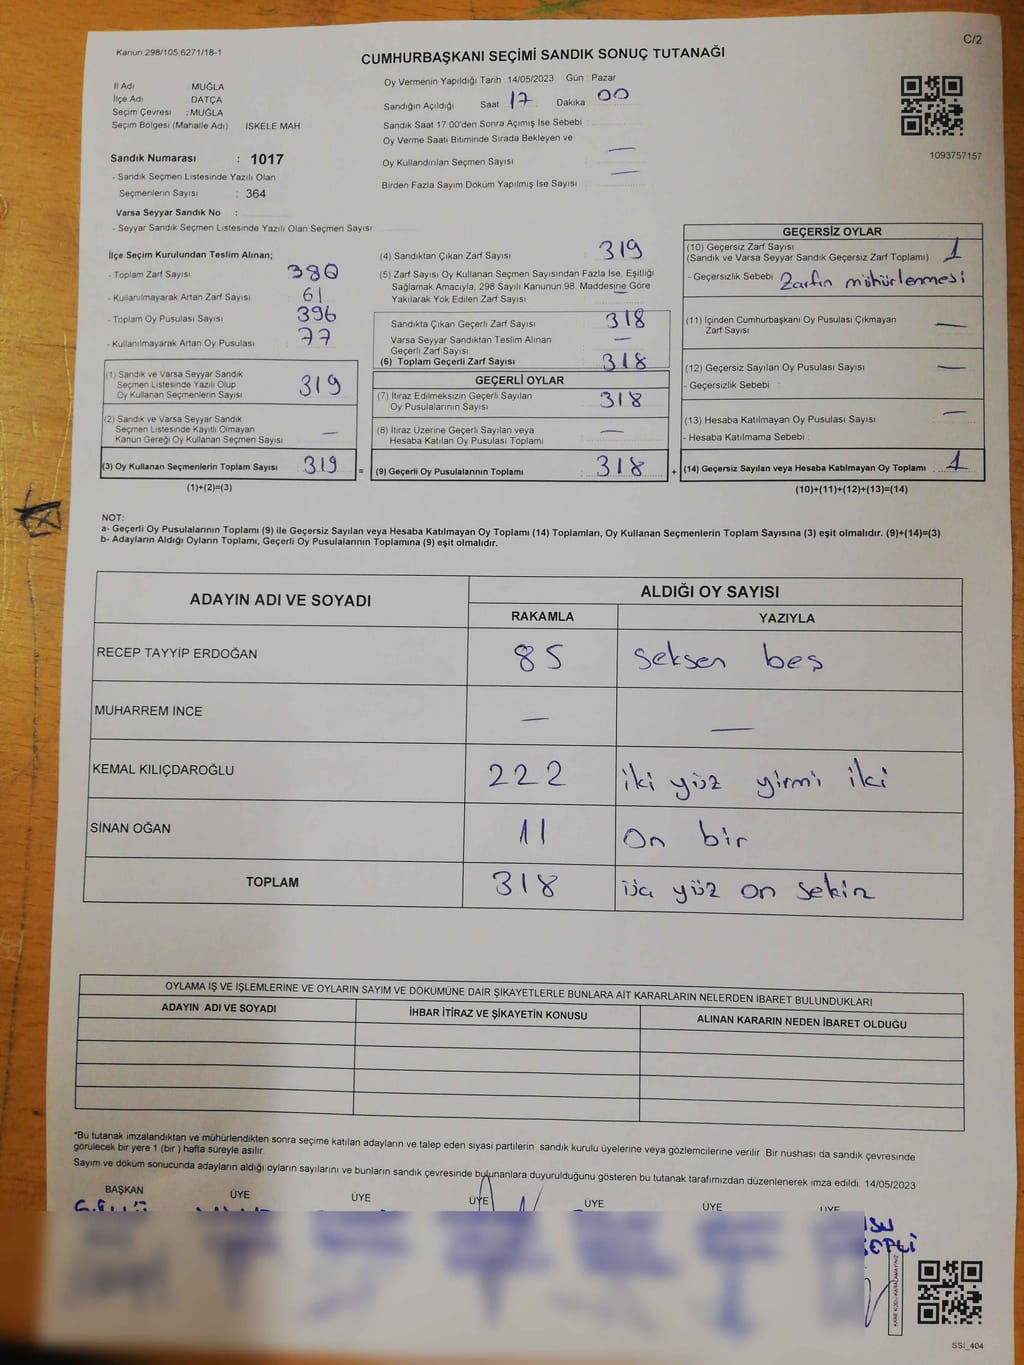 Kanun.298/105.6271/18-1
C/2
CUMHURBAŞKANI SEÇİMİ SANDIK SONUÇ TUTANAĞI
İl Adı : MUĞLA
İlçe Adı : DATÇA
Seçim Çevresi : MUĞLA
Seçim Bölgesi (Mahalle Adı) İSKELE MAH
Sandık Numarası : 1017
- Sandık Seçmen Listesinde Yazılı Olan
Seçmenlerin Sayısı : 364
Varsa Seyyar Sandık No :
- Seyyar Sandık Seçmen Listesinde Yazılı Olan Seçmen Sayısı:
Oy Vermenin Yapıldığı Tarih 14/05/2023 Gün Pazar
Sandığın Açıldığı Saat 17 Dakika 00
Sandık Saat 17:00'den Sonra Açımış İse Sebebi
Oy Verme Saati Bitiminde Sırada Bekleyen ve
Oy Kullandırılan Seçmen Sayısı —
Birden Fazla Sayım Döküm Yapılmış İse Sayısı —
1093757157
İlçe Seçim Kurulundan Teslim Alınan;
- Toplam Zarf Sayısı 380
- Kullanılmayarak Artan Zarf Sayısı 61
- Toplam Oy Pusulası Sayısı 396
- Kullanılmayarak Artan Oy Pusulası 77
(1) Sandık ve Varsa Seyyar Sandık
Seçmen Listesinde Yazılı Olup
Oy Kullanan Seçmenlerin Sayısı 319
(2) Sandık ve Varsa Seyyar Sandık
Seçmen Listesinde Kayıtlı Olmayan
Kanun Gereği Oy Kullanan Seçmen Sayısı —
(3) Oy Kullanan Seçmenlerin Toplam Sayısı 319 =
(1)+(2)=(3)
(4) Sandıktan Çıkan Zarf Sayısı 319
(5) Zarf Sayısı Oy Kullanan Seçmen Sayısından Fazla İse, Eşitliği
Sağlamak Amacıyla, 298 Sayılı Kanunun 98. Maddesine Göre
Yakılarak Yok Edilen Zarf Sayısı —
Sandıkta Çıkan Geçerli Zarf Sayısı 318
Varsa Seyyar Sandıktan Teslim Alınan
Geçerli Zarf Sayısı —
(6) Toplam Geçerli Zarf Sayısı 318
GEÇERLİ OYLAR
(7) İtiraz Edilmeksizin Geçerli Sayılan
Oy Pusulalarının Sayısı 318
(8) İtiraz Üzerine Geçerli Sayılan veya
Hesaba Katılan Oy Pusulası Toplamı —
(9) Geçerli Oy Pusulalarının Toplamı 318 +
GEÇERSİZ OYLAR
(10) Geçersiz Zarf Sayısı
(Sandık ve Varsa Seyyar Sandık Geçersiz Zarf Toplamı) 1
- Geçersizlik Sebebi Zarfın mühürlenmesi
(11) İçinden Cumhurbaşkanı Oy Pusulası Çıkmayan
Zarf Sayısı —
(12) Geçersiz Sayılan Oy Pusulası Sayısı —
- Geçersizlik Sebebi
(13) Hesaba Katılmayan Oy Pusulası Sayısı —
- Hesaba Katılmama Sebebi
(14) Geçersiz Sayılan veya Hesaba Katılmayan Oy Toplamı 1
(10)+(11)+(12)+(13)=(14)
NOT:
a- Geçerli Oy Pusulalarının Toplamı (9) ile Geçersiz Sayılan veya Hesaba Katılmayan Oy Toplamı (14) Toplamları, Oy Kullanan Seçmenlerin Toplam Sayısına (3) eşit olmalıdır. (9)+(14)=(3)
b- Adayların Aldığı Oyların Toplamı, Geçerli Oy Pusulalarının Toplamına (9) eşit olmalıdır.
ADAYIN ADI VE SOYADI ALDIĞI OY SAYISI
RAKAMLA YAZIYLA
RECEP TAYYİP ERDOĞAN 85 seksen beş
MUHARREM İNCE — —
KEMAL KILIÇDAROĞLU 222 iki yüz yirmi iki
SİNAN OĞAN 11 on bir
TOPLAM 318 yüz on sekiz
OYLAMA İŞ VE İŞLEMLERİNE VE OYLARIN SAYIM VE DÖKÜMÜNE DAİR ŞİKAYETLERLE BUNLARA AİT KARARLARIN NELERDEN İBARET BULUNDUKLARI
ADAYIN ADI VE SOYADI İHBAR İTİRAZ VE ŞİKAYETİN KONUSU ALINAN KARARIN NEDEN İBARET OLDUĞU
*Bu tutanak imzalandıktan ve mühürlendikten sonra seçime katılan adayların ve talep eden siyasi partilerin sandık kurulu üyelerine veya gözlemcilerine verilir. Bir nüshası da sandık çevresinde
görülecek bir yere 1 (bir) hafta süreyle asılır.
Sayım ve döküm sonucunda adayların aldığı oyların sayılarını ve bunların sandık çevresinde bulunanlara duyurulduğunu gösteren bu tutanak tarafımızdan düzenlenerek imza edildi. 14/05/2023
BAŞKAN ÜYE ÜYE ÜYE ÜYE ÜYE ÜYE
SSi_404